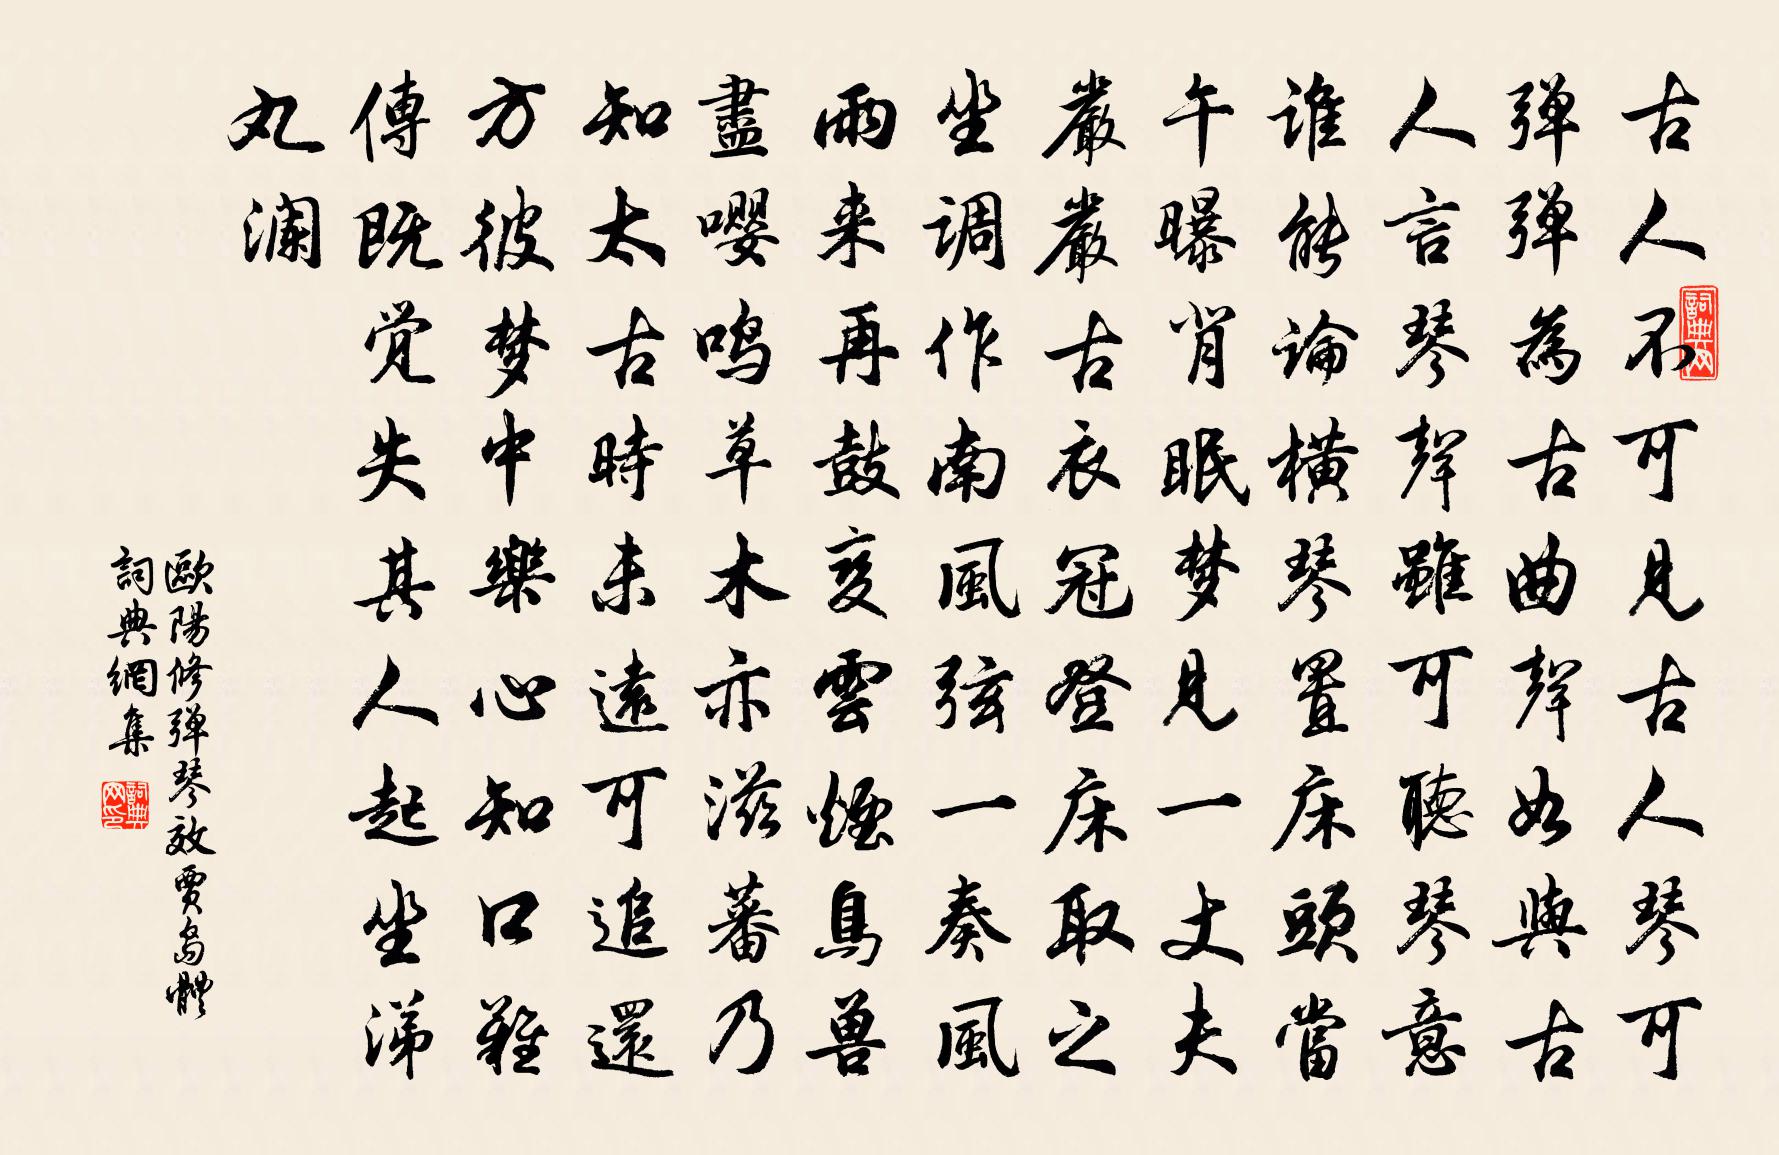 古人不可見古人琴可
弹弹為古曲聲如與古
人言琴聲雖可聽琴意
誰能論橫琴置床頭當
午曝背眠梦見一丈夫
嚴嚴古衣冠登床取之
坐调作南風弦一奏風
雨来再鼓变雲煙鳥兽
盡嘤鸣草木亦滋蕃乃
知太古時未遠可追還
方彼梦中樂心知口難
傳既觉失其人起坐涕
丸澜
歐陽修弹琴效賈島體
詞典網集
詞典网
詞典网印